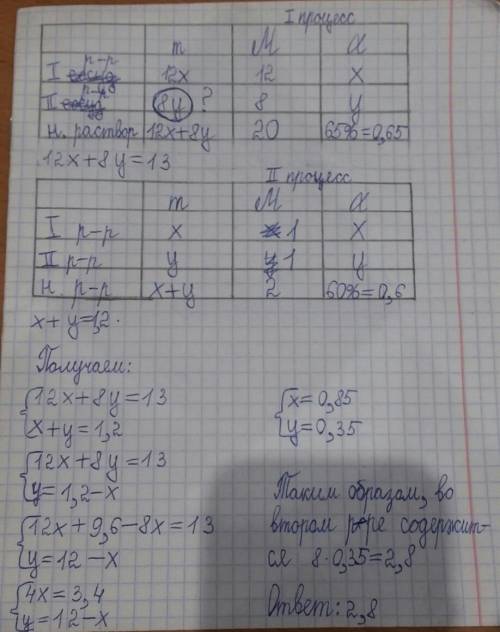 I процесс
m M α
I р-р 12x 12 x
II р-р 8y ? 8 y
н. раствор 12x+8y 20 65%=0,65
12x+8y=13
II процесс
m M α
I р-р x 1 x
II р-р y 1 y
н. р-р x+y 2 60%=0,6
x+y=1,2.
Получаем:
12x+8y=13
x+y=1,2
12x+8y=13
y=1,2-x
12x+9,6-8x=13
y=12-x
4x=3,4
y=12-x
x=0,85
y=0,35
Таким образом, во
втором р-ре содержит-
ся 8·0,35=2,8
Ответ: 2,8